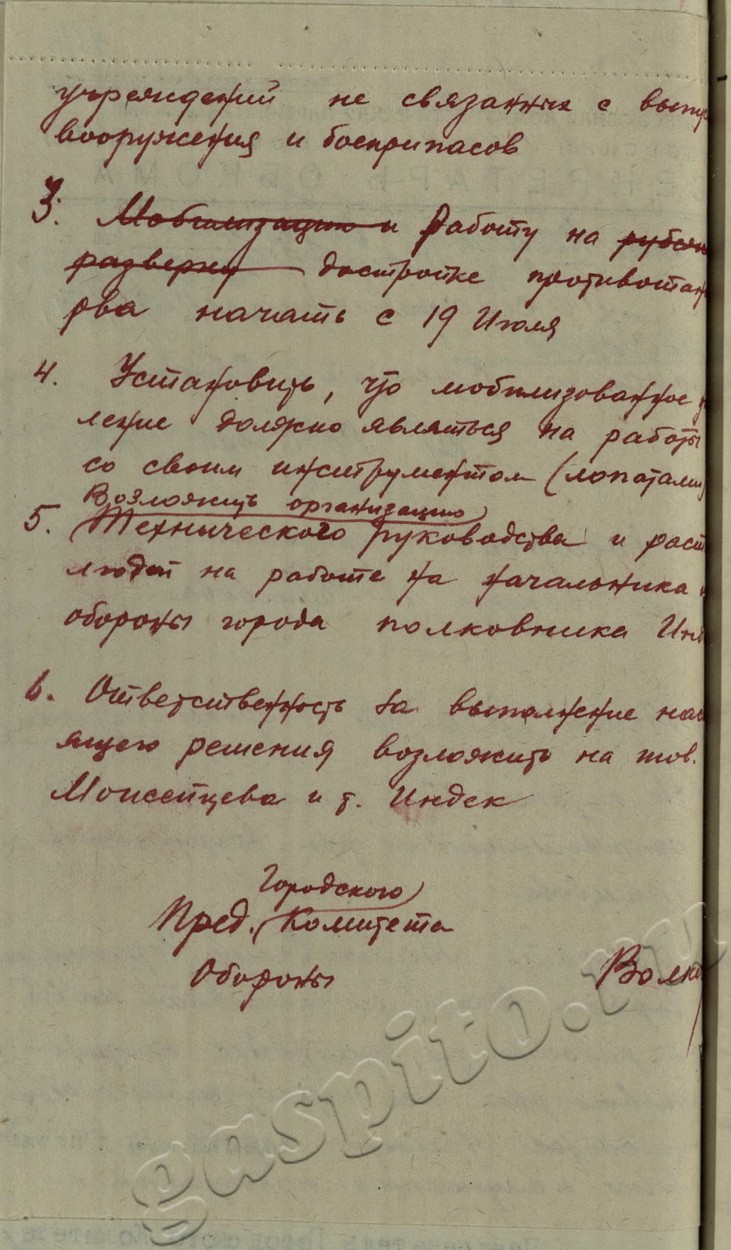 учреждений не связанных с выпу
вооружения и боеприпасов
3. Мобилизацию и работу на рубеж
разверну достройке противотан
рва начать с 19 Июля
4. Установить, что мобилизованное
ление должно являться на работы
со своим инструментом (лопатами
Возложить организацию
5. Технического руководства и раст
людей на работе на начальника
обороны города полковника Инд
6. Ответственность за выполнение нас
ящего решения возложить на тов.
Моисейцева и т. Индек
Городского
Пред. Комитета
Обороны Волко
gaspito.ru